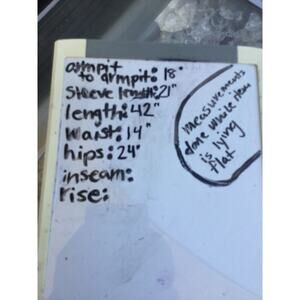 armpit
to armpit: 18"
Sleeve length: 21"
length: 42"
Waist: 14"
hips: 24"
inseam:
rise:
measurements
done while item
is lying
flat